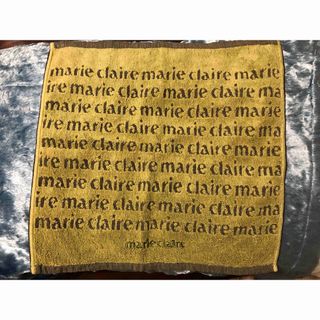 marie claire marie claire marie
ire marie claire marie claire ma
marie claire marie claire marie
ire marie claire marie claire ma
marie claire marie claire marie
ire marie claire marie claire ma
marie claire marie claire marie
ire marie claire marie claire ma
marie claire marie claire marie
marie claire